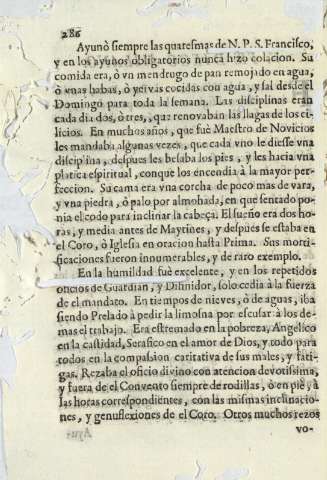 286
Ayunò siempre las quaresmas de N. P. S. Francisco,
y en los ayunos obligatorios nunca hizo colacion. Su
comida era, ò vn mendrugo de pan remojado en agua,
ò vnas habas, ò yervas cocidas con agua, y sal desde el
Domingo para toda la semana. Las disciplinas eran
cada dia dos, ò tres, que renovaban las llagas de los ci-
licios. En muchos años, que fuè Maestro de Novicios
les mandaba algunas vezes, que cada vno le diesse vna
disciplina, despues les besaba los pies, y les hacia vna
platica espiritual, conque los encendia à la mayor per-
feccion. Su cama era vna corcha de poco mas de vara,
y vna piedra, ò palo por almohada, en què sentado po-
nia el codo para inclinar la cabeça. El sueño era dos ho-
ras, y media antes de Maytines, y despues se estaba en
el Coro, ò Iglesia en oracion hasta Prima. Sus morti-
ficaciones fueron innumerables, y de raro exemplo.
En la humildad fuè excelente, y en los repetidos
oficios de Guardian, y Difinidor, solo cedia à la fuerza
de el mandato. En tiempos de nieves, ò de aguas, iba
siendo Prelado à pedir la limosna por escusar à los de-
mas el trabajo. Era estremado en la pobreza, Angelico
en la castidad, Serafico en el amor de Dios, y todo para
todos en la compassion caritativa de sus males, y fati-
gas. Rezaba el oficio divino con atencion devotissima,
y fuera de el Convento siempre de rodillas, ò en piè, à
las horas correspondientes, con las mismas inclinacio-
nes, y genuflexiones de el Coro. Otros muchos rezos
vo-